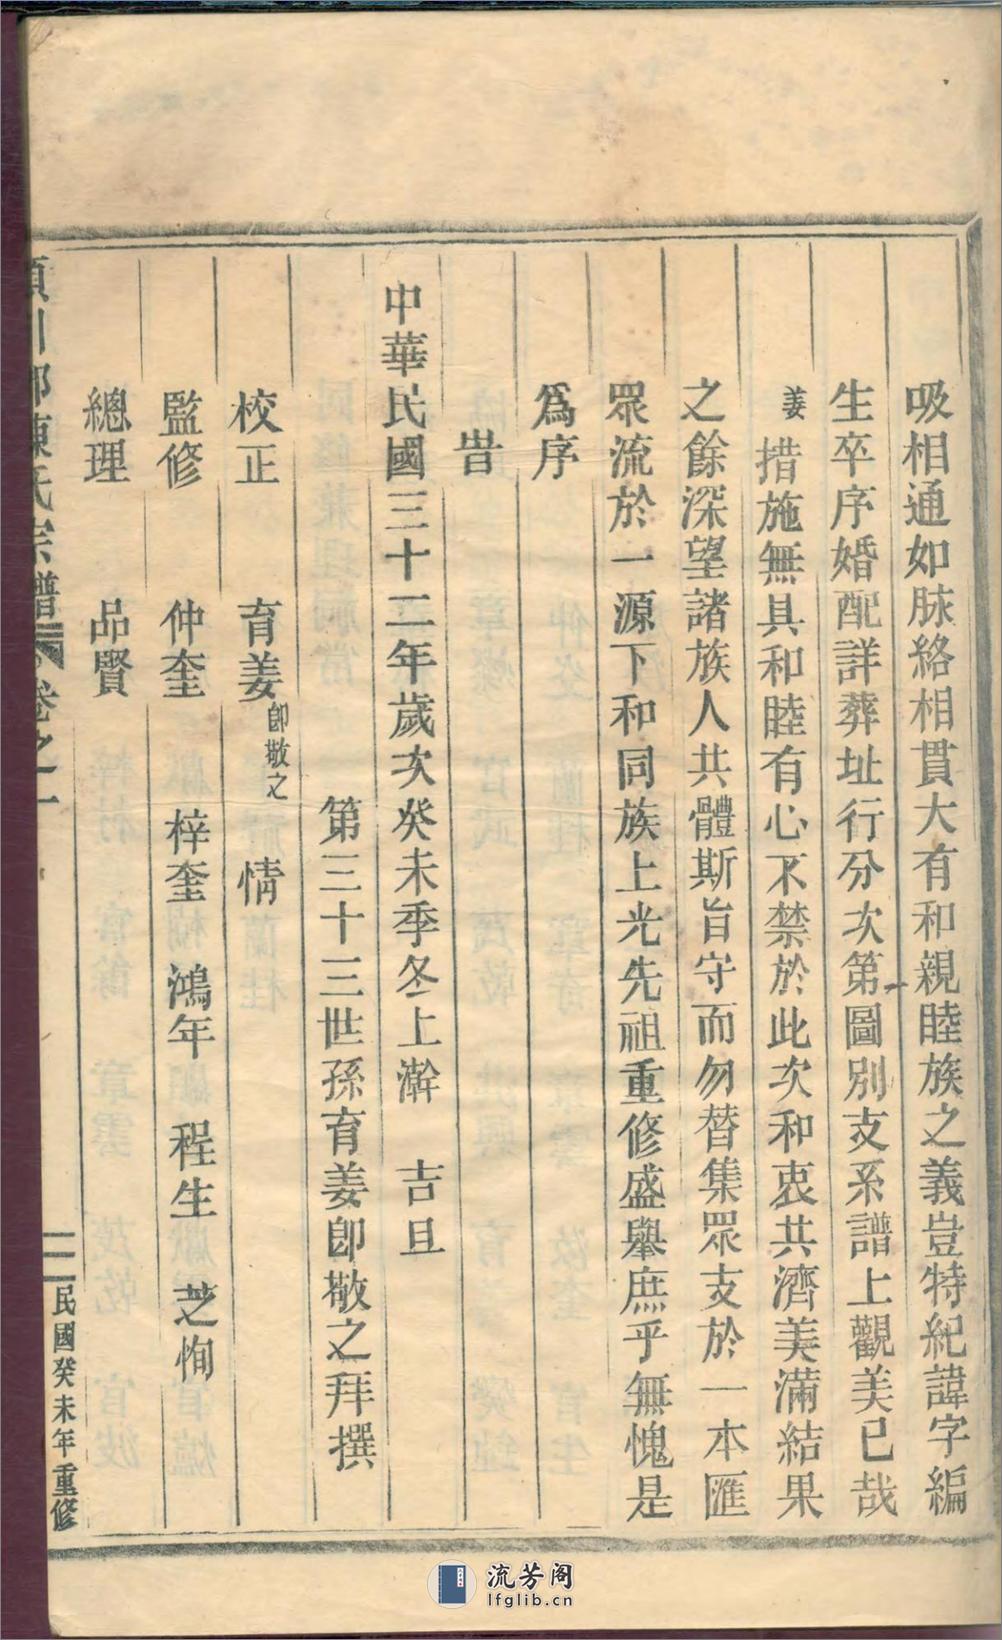 吸相通如脉絡相貫大有和親睦族之義豈特紀諱字編
生卒序婚配詳葬址行分次第圖別支系譜上觀美已哉
姜措施無具和睦有心不禁於此次和衷共濟美滿結果
之餘深望諸族人共體斯旨守而勿替集眾支於一本匯
眾流於一源下和同族上光先祖重修盛舉庶乎無愧是
爲序
旹
中華民國三十二年歲次癸未季冬上澣 吉旦
第三十三世孫育姜卽敬之拜撰
校正 育姜卽敬之 情
監修 仲奎 梓奎 鴻年 程生 芝恂
總理 品賢
川郡陳氏宗譜 卷之一 二 民國癸未年重修
流芳阁
lfglib.cn